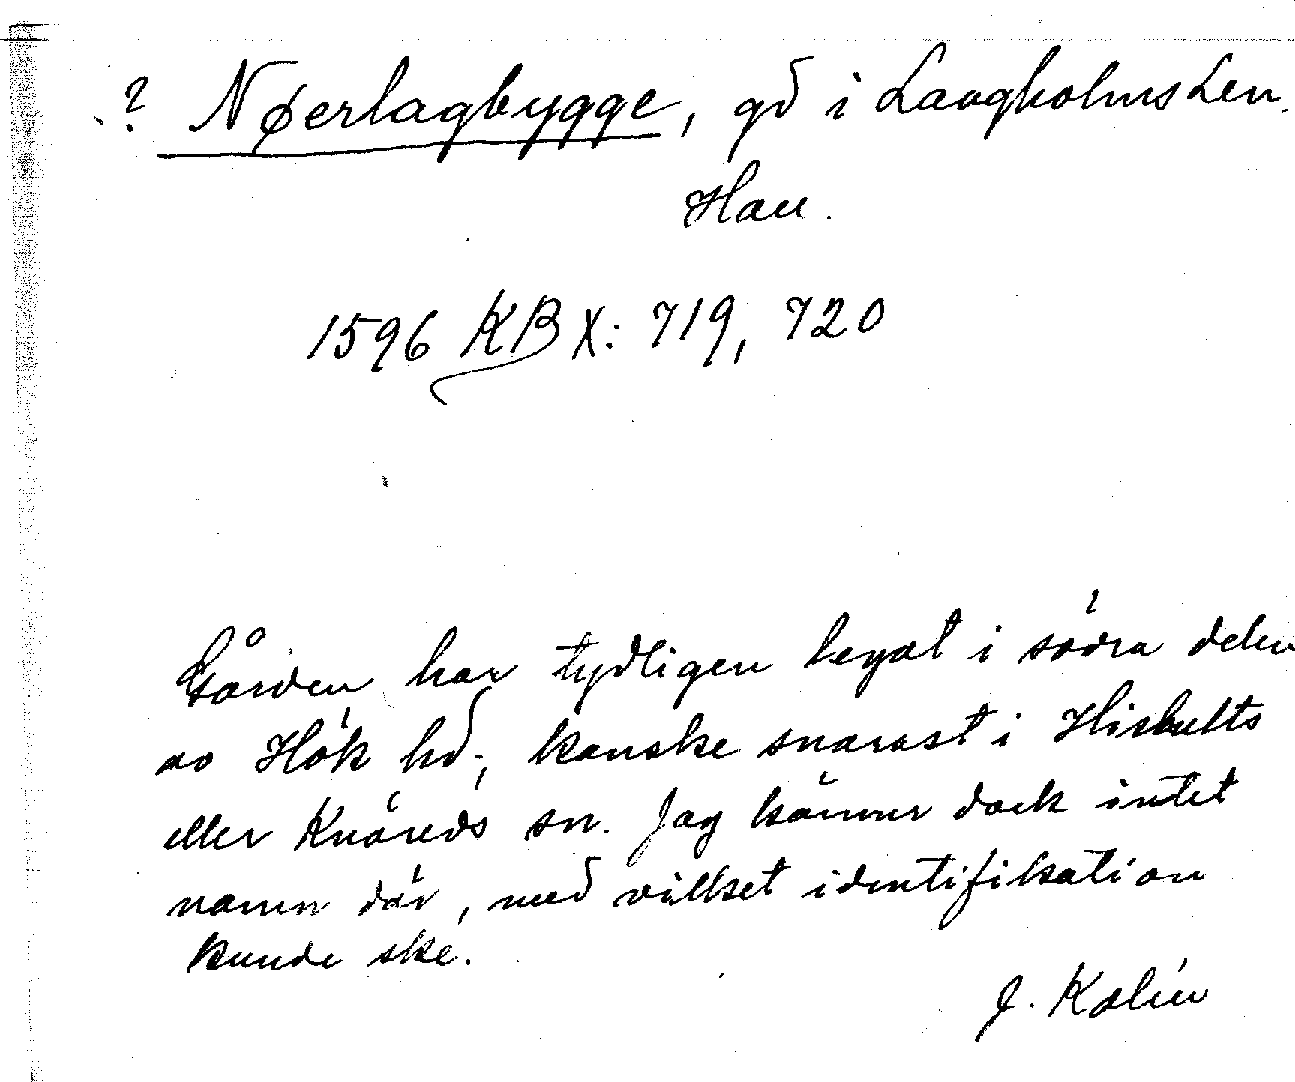 ? Nørlagbygge, gd i Laugholms Len.
Hall.
1596 KB X: 719, 720
Gården har tydligen legat i södra delen
av Hök hd., kanske snarast i Hishults
eller Knäreds sn. Jag känner dock intet
namn där, med vilket identifikation
kunde ske.
J. Kalén